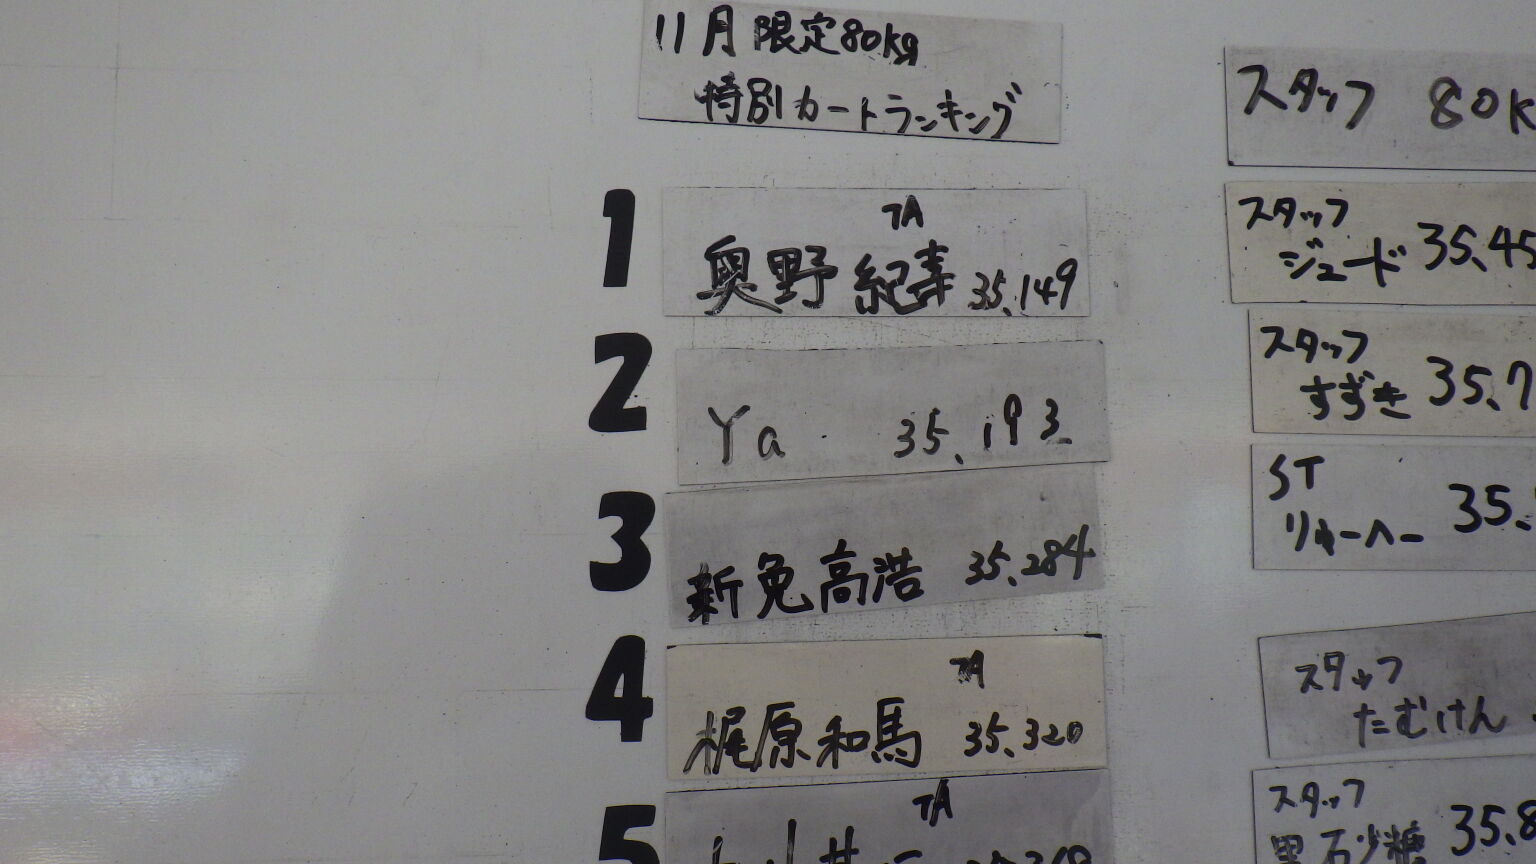 11月限定80kg
特別カートランキング
1
TA
奥野 紀寿 35.149
2
Ya 35.193
3
新免高浩 35.284
4
TA
梶原和馬 35.320
5
TA
スタッフ 80K
スタッフ
ジュード 35.45
スタッフ
すずき 35.7
ST
リキーヘー 35.
スタッフ
たむけん
スタッフ
黒石砂糖 35.8